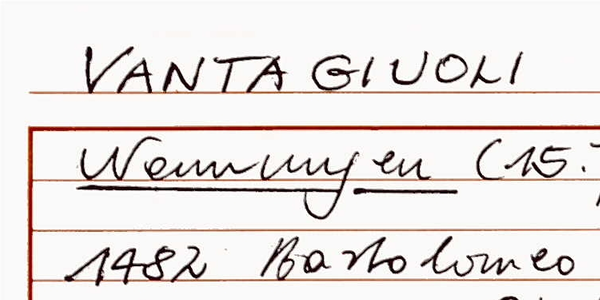 VANTAGIUOLI
Nennungen (15.
1482 Bartolomeo